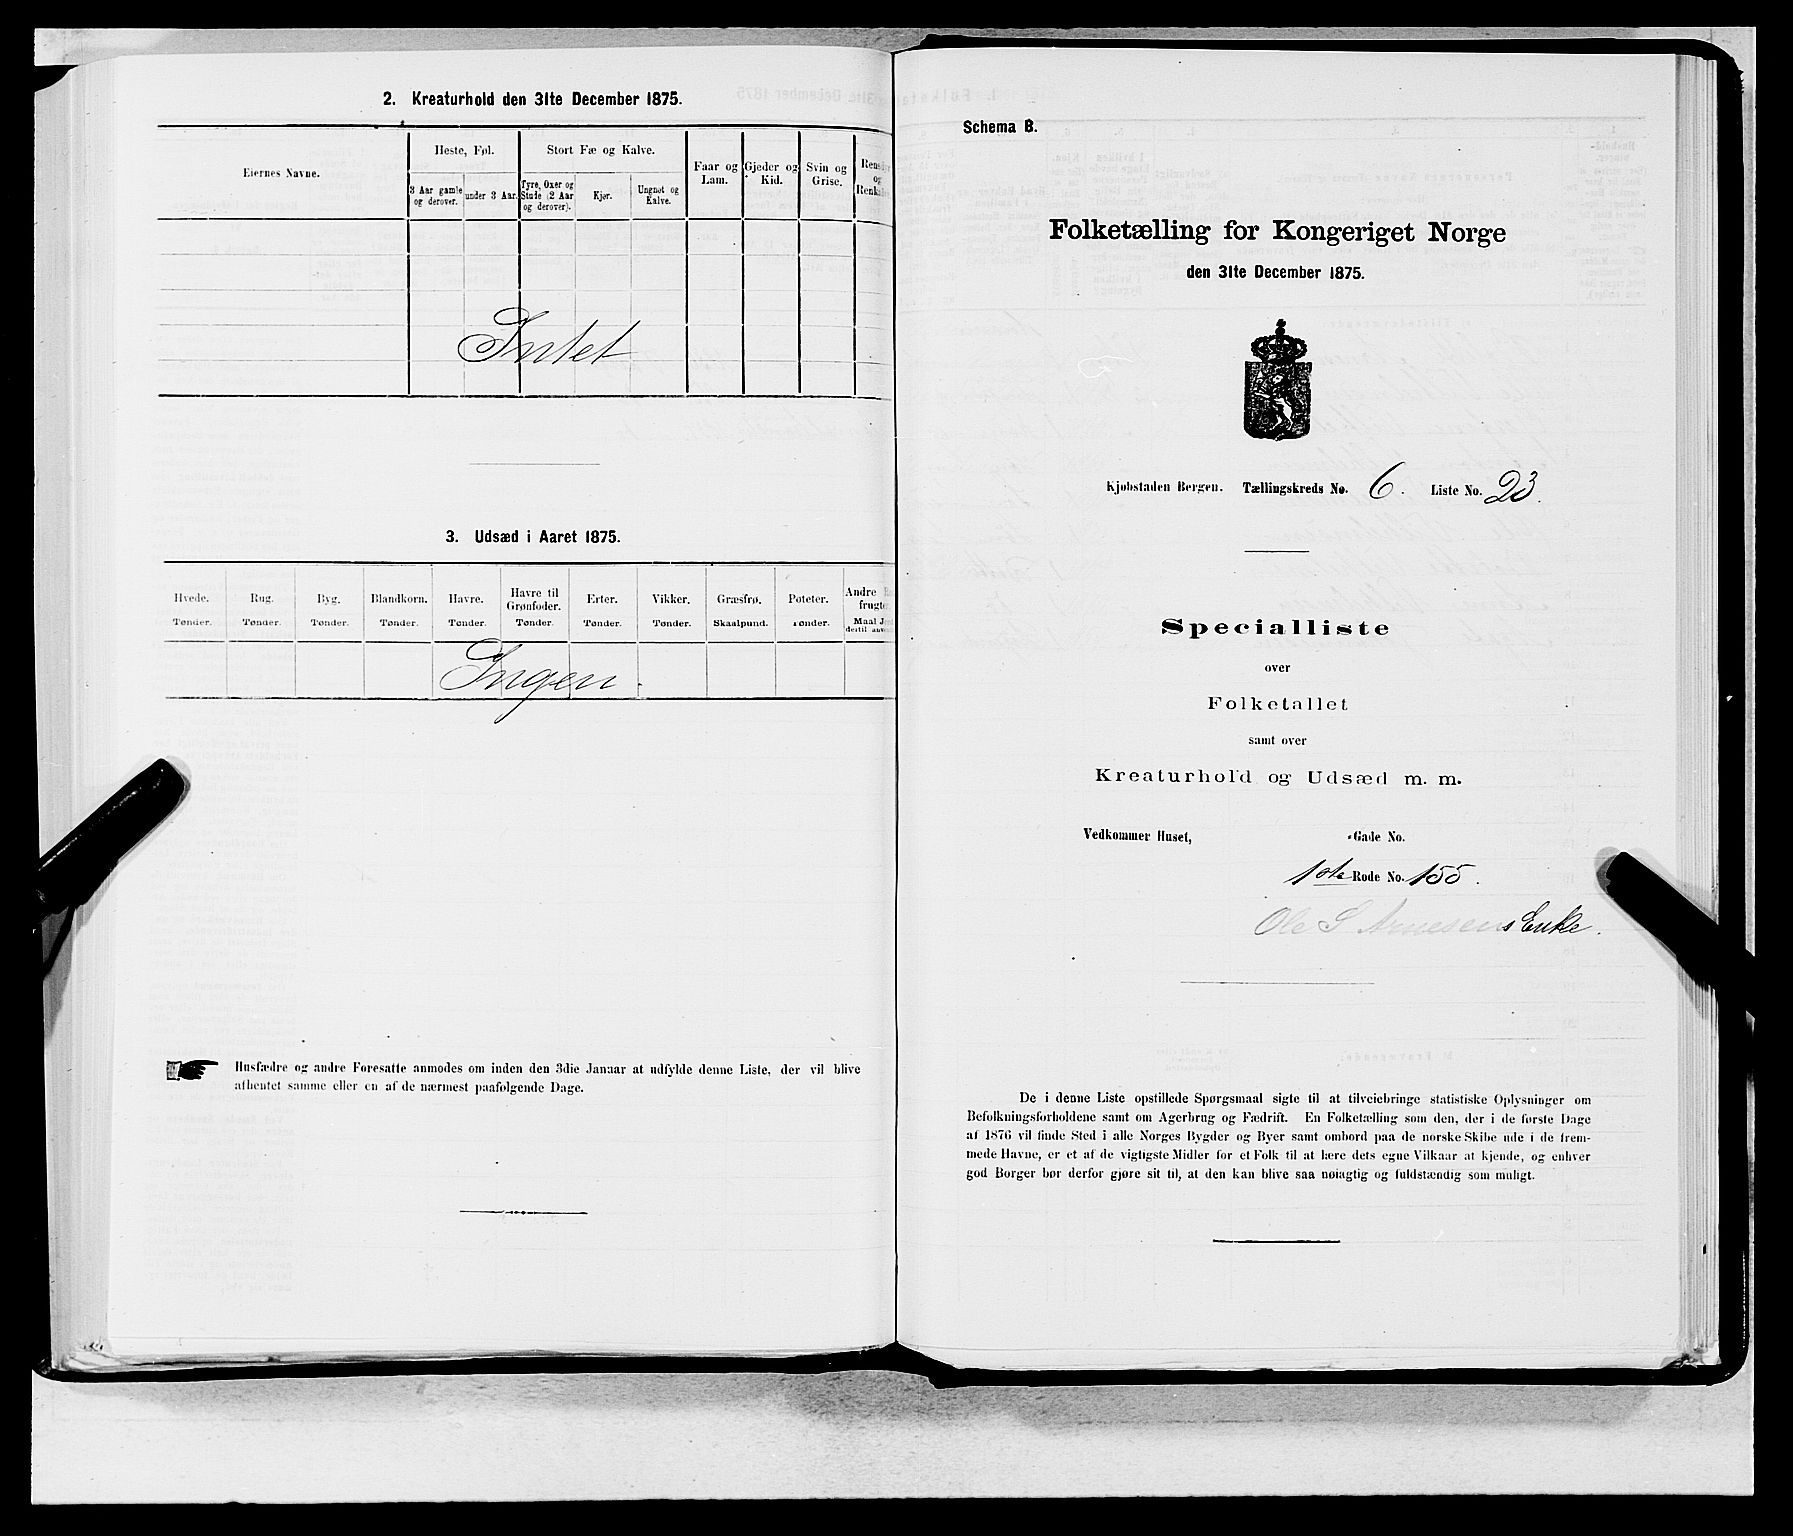 2. Kreaturhold den 31te December 1875.
Eiernes Navne.
Heste, Føl.
3 Aar gamle og derover.
under 3 Aar.
Stort Fæ og Kalve.
Tyre, Oxer og Stude (2 Aar og derover).
Kjør.
Ungnøt og Kalve.
Faar og Lam.
Gjeder og Kid.
Svin og Grise.
Intet
3. Udsæd i Aaret 1875.
Hvede. Rug. Byg. Blandkorn. Havre. Havre til Grønfoder. Erter. Vikker. Græsfrø. Poteter. Andre
Tønder. Tønder. Tønder. Tønder. Tønder. Tønder. Tønder. Tønder. Skaalpund. Tønder. Maal
Ingen
Husfædre og andre Foresatte anmodes om inden den 3die Januar at udfylde denne Liste, der vil blive
afhentet samme eller en af de nærmest paafølgende Dage.
Schema B.
Folketælling for Kongeriget Norge
den 31te December 1875.
Kjøbstaden Bergen. Tællingskreds No. 6. Liste No. 23.
Specialliste
over
Folketallet
samt over
Kreaturhold og Udsæd m. m.
Vedkommer Huset, -Gade No.
1ste Rode No. 155.
Ole S Arnesens Enke.
De i denne Liste opstillede Spørgsmaal sigte til at tilveiebringe statistiske Oplysninger om
Befolkningsforholdene samt om Agerbrug og Fædrift. En Folketælling som den, der i de første Dage
af 1876 vil finde Sted i alle Norges Bygder og Byer samt ombord paa de norske Skibe ude i de frem-
mede Havne, er et af de vigtigste Midler for et Folk til at lære dets egne Vilkaar at kjende, og enhver
god Borger bør derfor gjøre sit til, at den kan blive saa nøiagtig og fuldstændig som muligt.